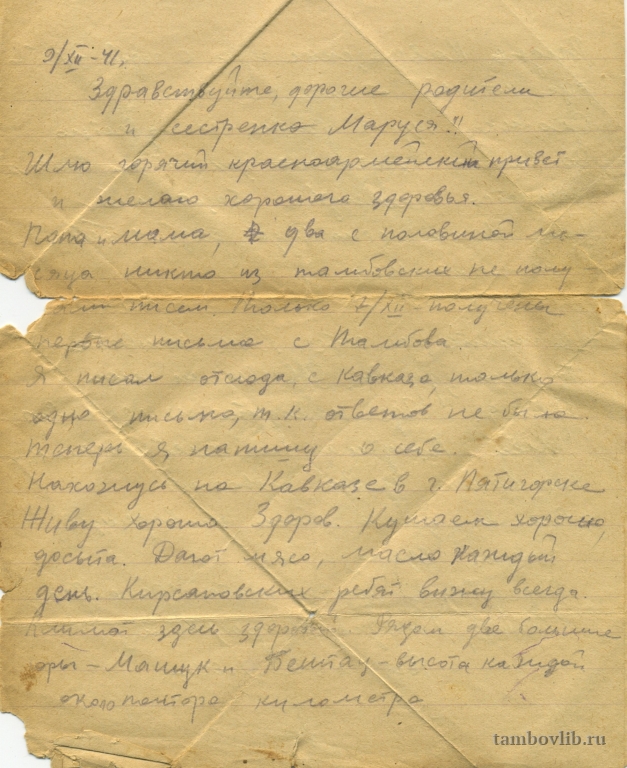 9/XII-41.
Здравствуйте, дорогие родители
и сестренка Маруся!!
Шлю горячий красноармейский привет
и желаю хорошего здоровья.
Папа и мама, два с половиной ме-
сяца никто из тамбовских не полу
писем. Только 7/XII-получены
первые письма с Тамбова.
Я писал отсюда, с Кавказа, только
одно письмо, т.к. ответов не было.
Теперь я напишу о себе.
Нахожусь на Кавказе в г. Пятигорске
Живу хорошо Здоров. Кушаем хорошо,
досыта. Дают мясо, масло каждый
день. Кирсановских ребят вижу всегда.
Климат здесь здоровый. Рядом две большие
оры-Машук и Бештау-высота каждой
около полтора километра
tambovlib.ru